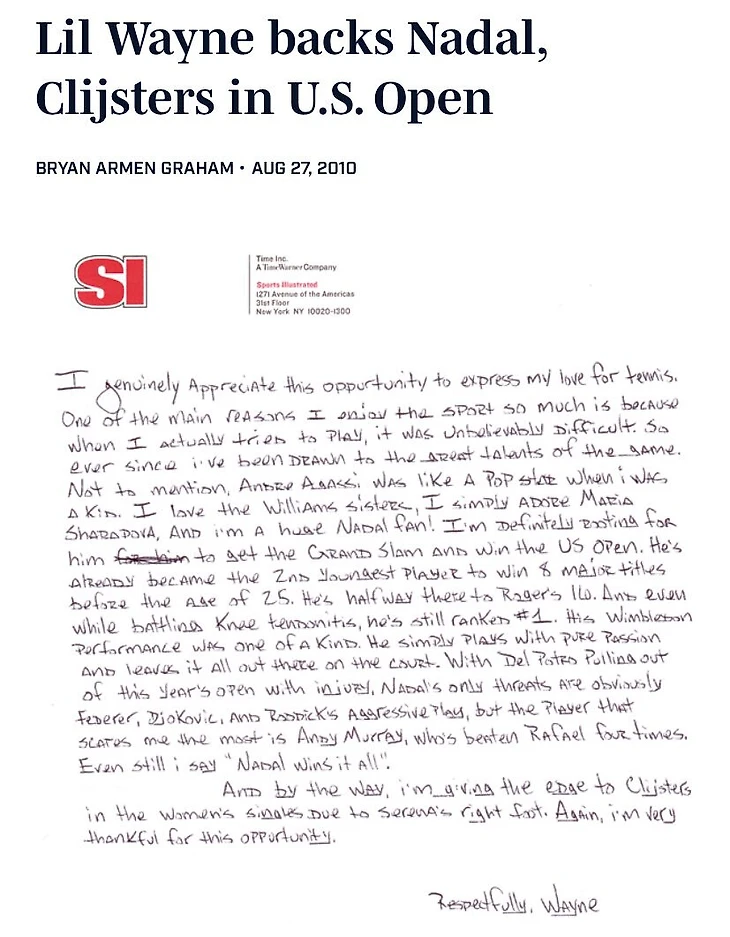 Lil Wayne backs Nadal,
Clijsters in U.S. Open
BRYAN ARMEN GRAHAM • AUG 27, 2010
SI
Time Inc.
A TimeWarner Company
Sports Illustrated
1271 Avenue of the Americas
31st Floor
New York NY 10020-1300
I genuinely Appreciate this opportunity to express my love for tennis.
One of the main reasons I enjoy the sport so much is because
when I actually tried to play, it was unbelievably difficult. So
ever since i've been drawn to the great talents of the game.
Not to mention, Andre Agassi was like a pop star when i was
a kid. I love the Williams sisters, I simply adore Maria
Sharapova, and i'm a huge Nadal fan! I'm definitely rooting for
him for him to get the Grand Slam and win the US Open. He's
already became the 2nd youngest player to win 8 major titles
before the age of 25. He's halfway there to Roger's 16. And even
while battling knee tendonitis, he's still ranked #1. His Wimbledon
performance was one of a kind. He simply plays with pure passion
and leaves it all out there on the court. With Del Potro pulling out
of this year's open with injury, Nadal's only threats are obviously
Federer, Djokovic, and Roddick's aggressive play, but the player that
scares me the most is Andy Murray, who's beaten Rafael four times.
Even still i say "Nadal wins it all".
And by the way, i'm giving the edge to Clijsters
in the women's singles due to Serena's right foot. Again, i'm very
thankful for this opportunity.
Respectfully, Wayne